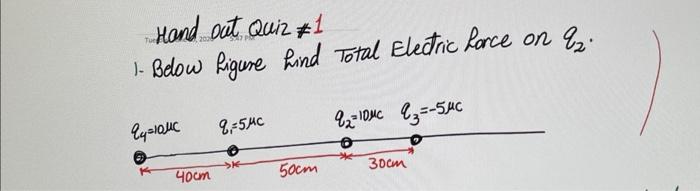 Hand out Quiz #1
1- Below figure find Total Electric force on q₂.
q₄=10μC q₁=5μC q₂=10μC q₃=-5μC
40cm 50cm 30cm